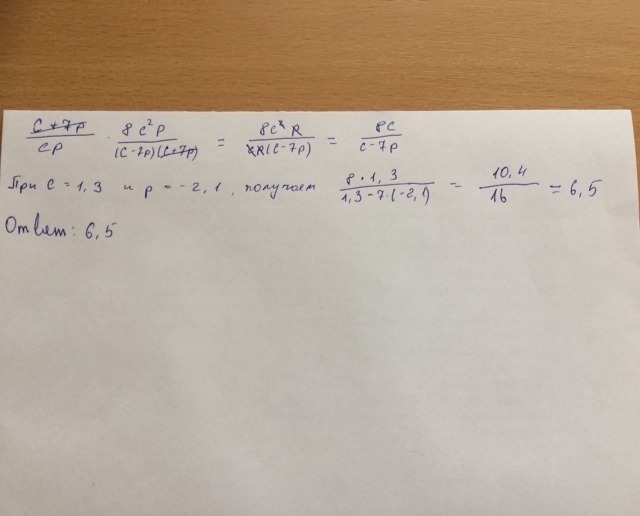 (c+7p)/(cp) · 8c²p/((c-7p)(c+7p)) = 8c²p/(cp(c-7p)) = 8c/(c-7p)
При c = 1,3 и p = -2,1, получаем (8·1,3)/(1,3-7·(-2,1)) = 10,4/16 = 6,5
Ответ: 6,5